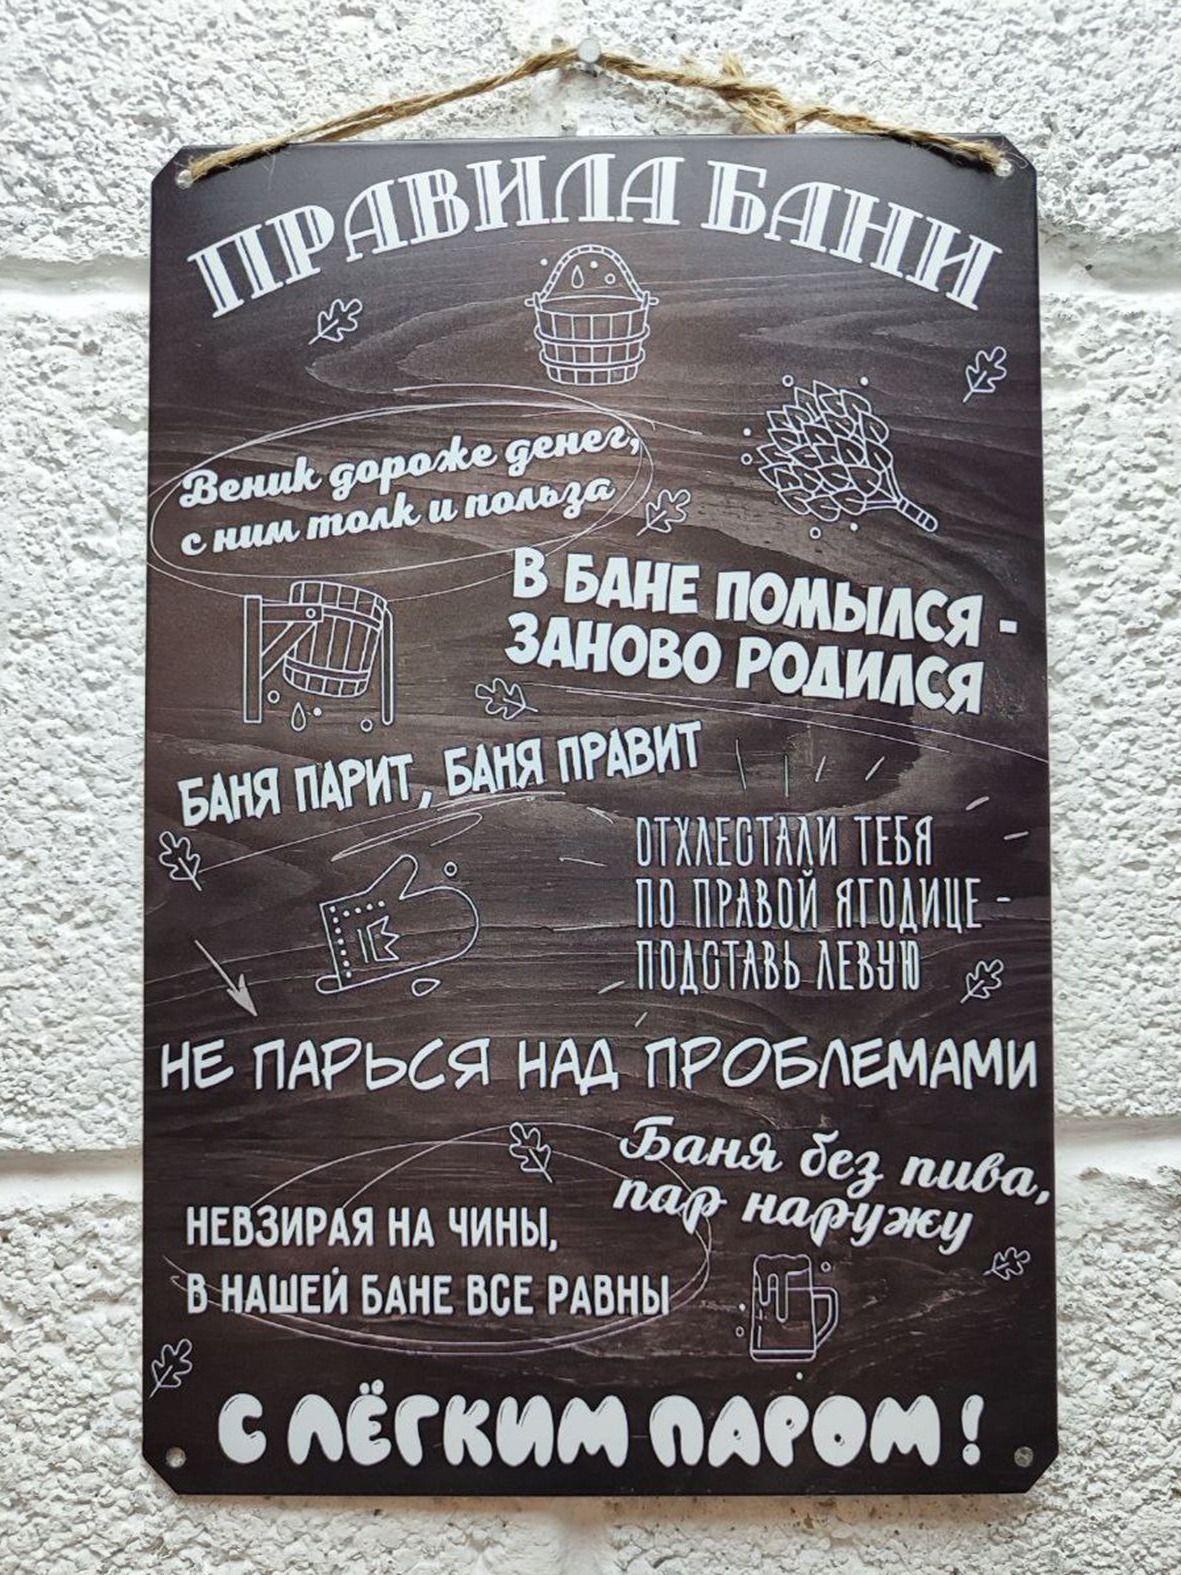 ПРАВИЛА БАНИ
Веник дороже денег,
с ним толк и польза
В БАНЕ ПОМЫЛСЯ -
ЗАНОВО РОДИЛСЯ
БАНЯ ПАРИТ, БАНЯ ПРАВИТ
ОТХЛЕСТАЛИ ТЕБЯ
ПО ПРАВОЙ ЯГОДИЦЕ -
ПОДСТАВЬ ЛЕВУЮ
НЕ ПАРЬСЯ НАД ПРОБЛЕМАМИ
Баня без пива,
пар наружу
НЕВЗИРАЯ НА ЧИНЫ,
В НАШЕЙ БАНЕ ВСЕ РАВНЫ
С ЛЁГКИМ ПАРОМ!